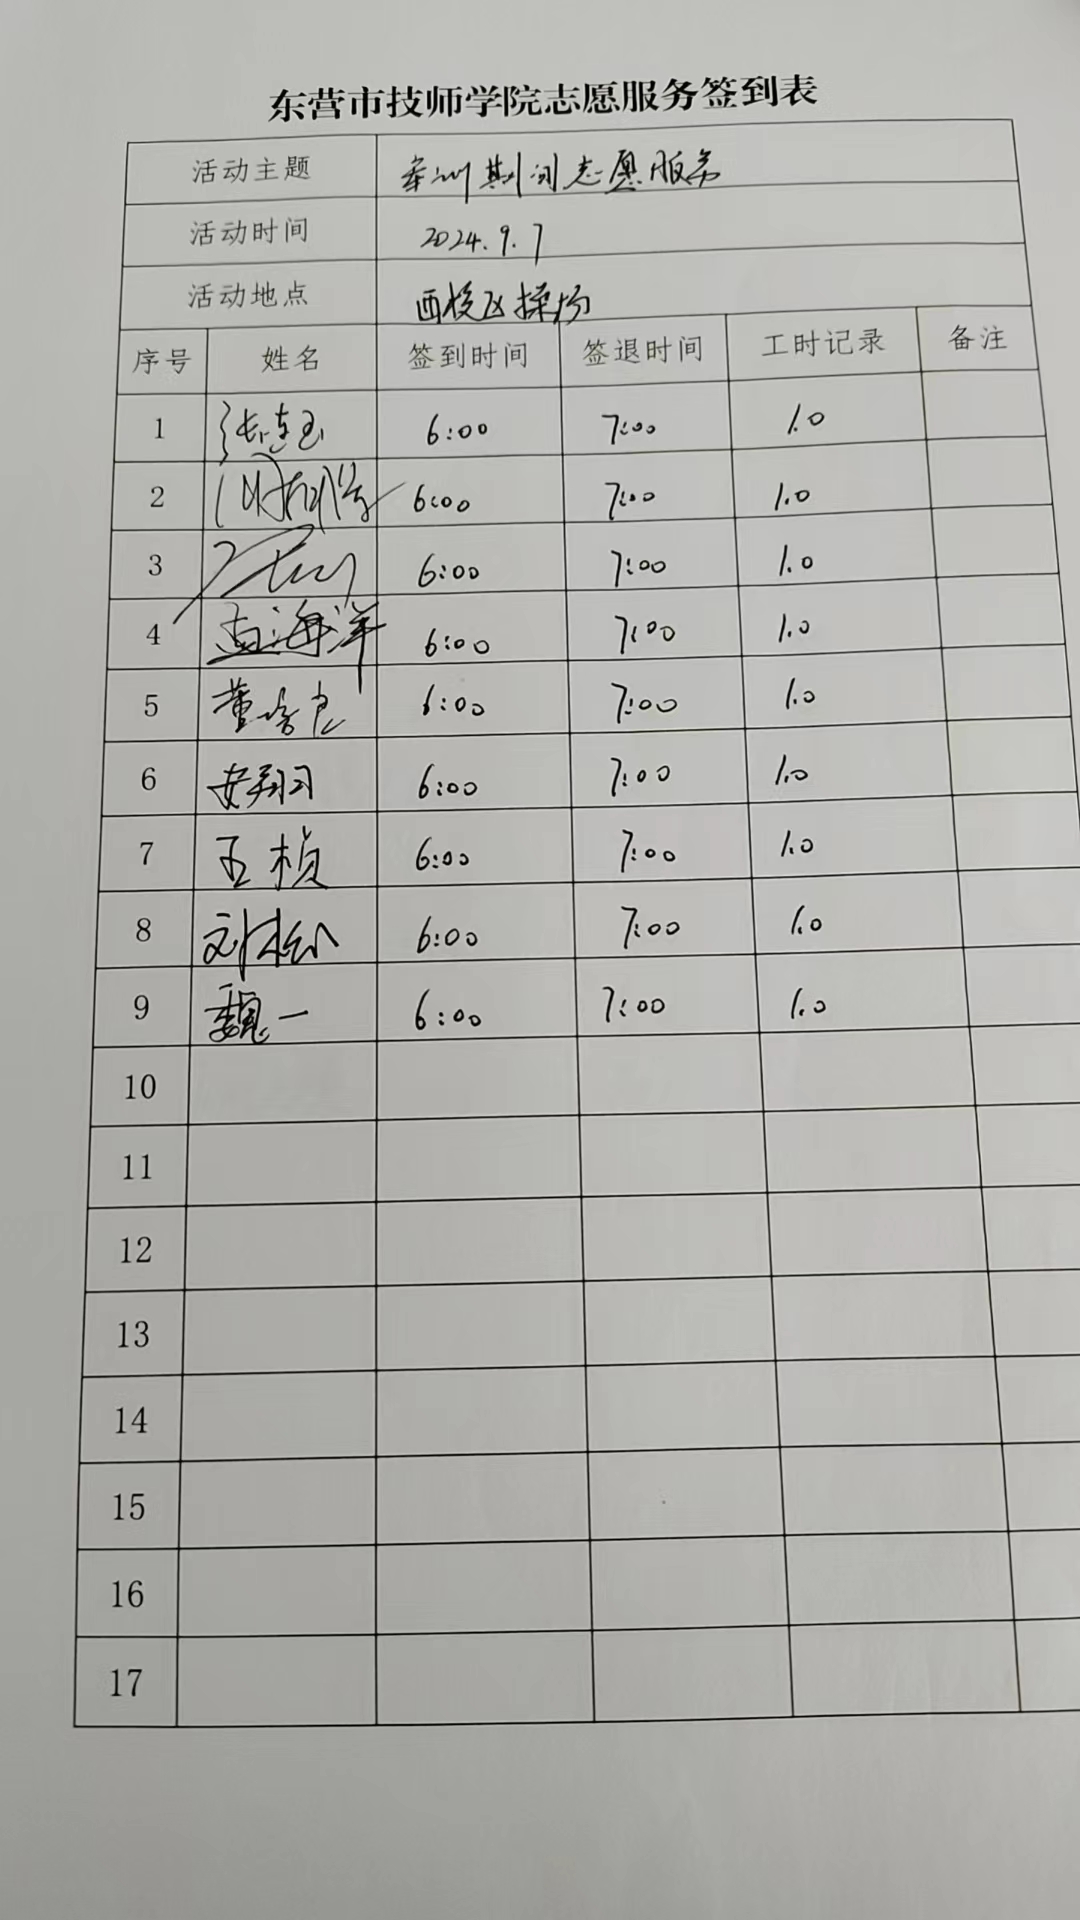 东营市技师学院志愿服务签到表
活动主题 军训期间志愿服务
活动时间 2024.9.7
活动地点 西校区操场
序号 姓名 签到时间 签退时间 工时记录 备注
1 张连玉 6:00 7:00 1.0
2 6:00 7:00 1.0
3 6:00 7:00 1.0
4 海洋 6:00 7:00 1.0
5 董 6:00 7:00 1.0
6 安翔习 6:00 7:00 1.0
7 王桢 6:00 7:00 1.0
8 刘松 6:00 7:00 1.0
9 魏一 6:00 7:00 1.0
10
11
12
13
14
15
16
17